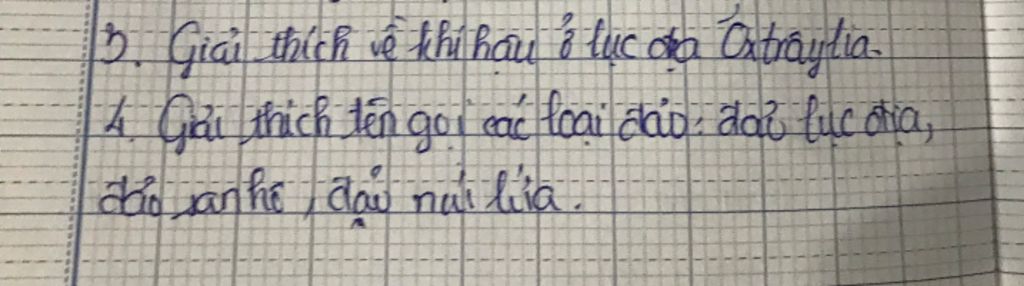 3. Giải thích về khí hậu ở lục địa Ôxtrâylia.
4. Giải thích tên gọi các loại đảo: đảo lục địa,
đảo san hô, đảo núi lửa.